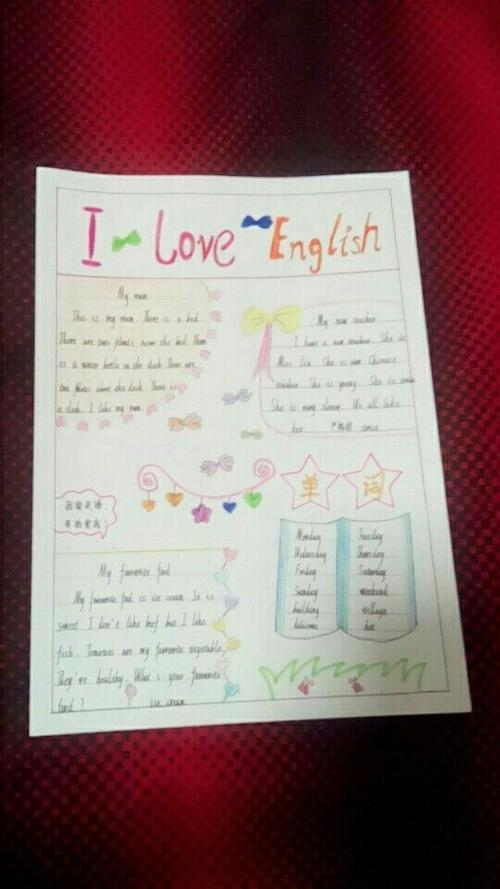 I Love English
My room
This is my room. There is a bed.
There are two plants near the bed. There
is a water bottle on the desk. There are
two photos above the desk. There is
a clock. I like my room.
My new teacher
I have a new teacher. She is
Miss Liu. She is our Chinese
teacher. She is young. She is
She is very clever. We all like
her
单词
我爱英语
Monday Tuesday
Wednesday Thursday
Friday Saturday
Sunday weekend
building village
delicious hot
My favourite food
My favourite food is ice cream. It is
sweet. I don't like beef but I like
fish. Tomatoes are my favourite vegetable.
They're healthy. What's your favourite
food ? ice cream